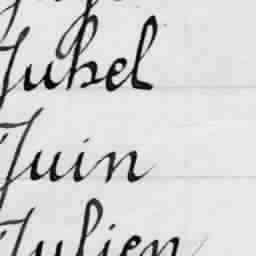 Juhel
Juin
Julien